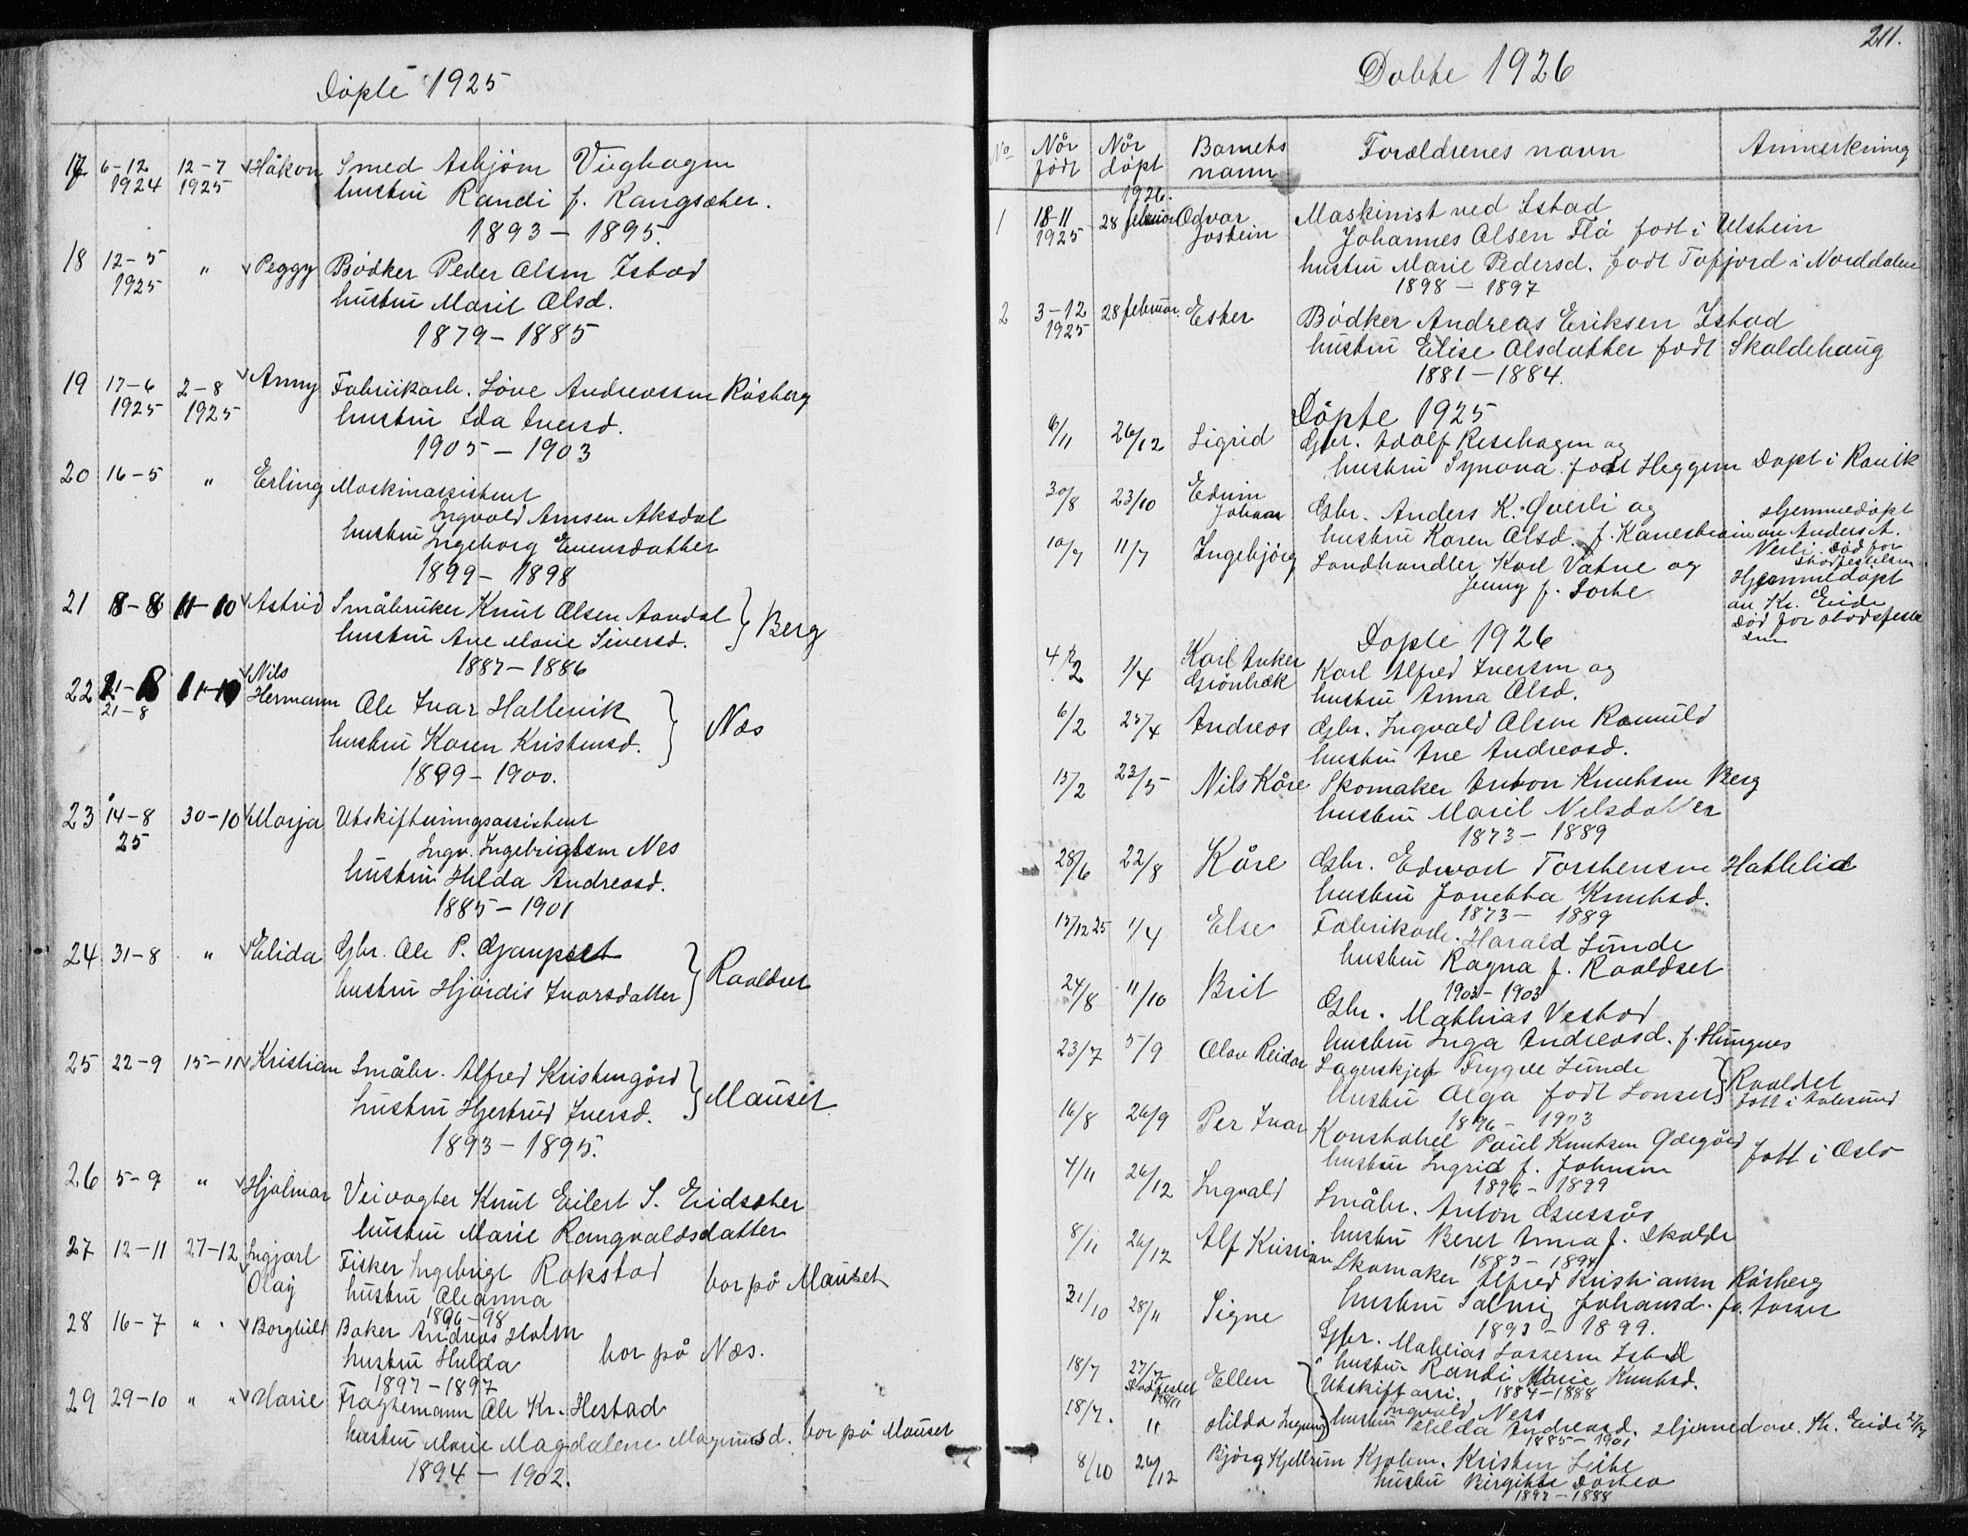 Döpte 1925
17 6-12 1924 12-7 1925 Håkon Smed Asbjörn
hustru Randi f. Rangsæter.
1893 - 1895.
18 12-5 1925 " Peggy Bödker Peder Olsen Istad
hustru Marit Olsd.
1879 - 1885
19 17-6 1925 2-8 1925 Anny Fabrikarb. Löve Andreassen Råsberg
hustru Ida Iversd.
1905 - 1903
20 16-5 " Erling Maskinassistent
Ingvald Arnsen Aksdal
hustru Ingeborg Evensdatter
1899 - 1898
21 8-8 11-10 Astrid Småbruker Knut Olsen Aandal } Berg
hustru Ane Marie Siversd.
1887 - 1886
22 21-8 11-10 Nils Hermann Ole Ivar Hallenvik } Næs
21-8
hustru Karen Kristensd.
1899 - 1900.
23 14-8 25 30-10 Marja Utskiftningsassistent
Ingv. Ingebrigtsen Nes
hustru Hilda Andreasd.
1885 - 1901
24 31-8 " Elida Gbr. Ole P. Gjaupset } Raaldset
hustru Hjördis Ivarsdatter
25 22-9 15-11 Kristian Småbr. Alfred Kristengård } Mauset
hustru Hjertrud Iversd.
1893 - 1895.
26 5-9 " Hjalmar Veivogter Knut Eilert S. Eidsæter
hustru Marie Rangvaldsdatter
27 12-11 27-12 Ingjarl Olay Fisker Ingebrigt Rakstad bor på Mauset
hustru Oleanna
1896-98
28 16-7 " " Borghild Baker Andreas Holm
hustru Hulda bor på Næs.
1897 - 1897
29 29-10 " " Marie Fragtemann Ole Kr. Hestad
hustru Marie Magdalene Magnusd. bor på Mauset
1894 - 1902.
211.
Döbte 1926
No Når födt Når döpt Barnets navn Forældrenes navn Anmerkning
1926.
1 18-11 1925 28 februar Odvar Jostein Maskinist ved Istad
Johannes Olsen Flö födt i Ulstein
hustru Marie Pedersd. födt Tafjord i Norddalen
1898 - 1897
2 3-12 1925 28 februar. Ester Bödker Andreas Eriksen Istad
hustru Elise Olsdatter födt Skaldehaug
1881 - 1884.
Döpte 1925
6/11 26/12 Sigrid Gbr. Adolf Reschagen og
hustru Synova födt Heggem Döpt i Rovik
30/8 23/10 Edvin Johan Gbr. Anders K. Qverli og
hustru Karen Olsd. f. Kanestraum Hjemmedöpt av Anders A. Verli. Död for stadfestelsen
10/7 11/7 Ingebjörg Landhandler Karl Vatne og
Jenny f. Sorte Hjemmedöpt av Kr. Eide Död for stadsfestelsen
Döpte 1926
4/2 1/4 Karl Anker Grönbæk Karl Alfred Iversen og
hustru Anna Olsd.
6/2 25/4 Andreas Gbr. Ingvald Olsen Romuld
hustru Ane Andreasd.
15/2 23/5 Nils Kåre Skomaker Anton Knutsen Berg
hustru Marit Nilsdatter
1873 - 1889
28/6 22/8 Kåre Gbr. Edvart Torstensen Hatlelid
hustru Jonetta Knutsd.
1873 - 1889
15/12 25 1/4 Else Fabrikarb. Harald Lunde
hustru Ragna f. Raaldset
1903 - 1903
24/8 11/10 Brit Gbr. Mathias Vestad
hustru Inga Andreasd. f. Hungnes
23/7 5/9 Olav Reidar Lagerskjef Trygve Lunde } Raaldset
hustru Olga födt Lonset födt i Aalesund
1896 - 1903
16/8 26/9 Per Ivar Konstabel Paul Knutsen Ödegård
hustru Ingrid f. Johnsen födt i Oslo
1896 - 1899
4/11 26/12 Ingvald Småbr. Anton Gussås
hustru Beret Anna f. Skalde
1883 - 1894
8/11 26/12 Alf Kristian Skomaker Alfred Kristiansen Råsberg
hustru Salmig Johansd. fö. Aarset
1893 - 1899.
31/10 28/11 Signe Gbr. Mathias Lassesen Istad
hustru Randi Marie Knutsd.
1884-1888
18/7 27/7 Stadfestet Ellen { Utskift assi.
Ingvald Ness
18/7. " Hilda Ingunn } hustru Hilda Andreasd. Hjemmed av. Kr. Eide 27/7
1885 - 1901
8/10 26/12 Björg Kjellrun Kristen
hustru Birgitte Dortea
1892 - 1888